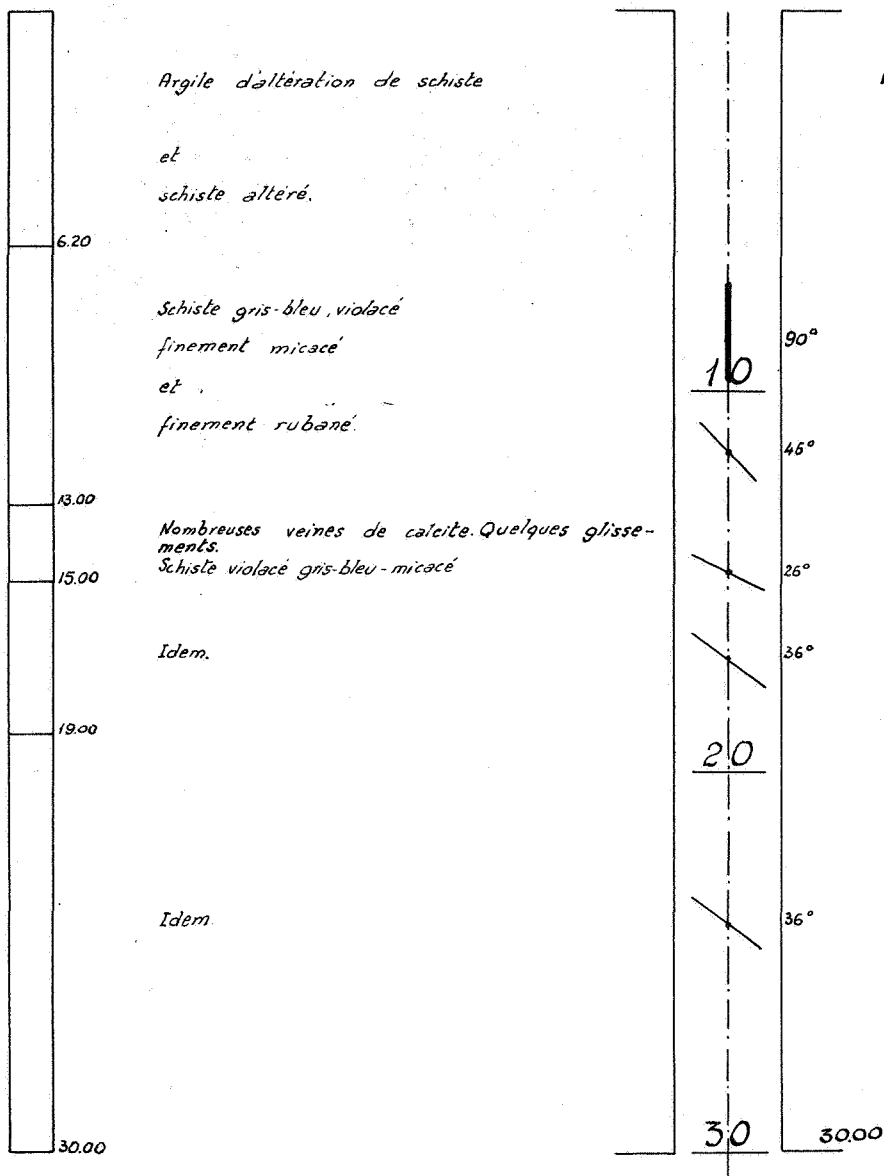 Argile d'altération de schiste
et
schiste altéré.
6.20
Schiste gris-bleu, violacé
finement micacé
et
finement rubané.
90°
10
45°
13.00
Nombreuses veines de calcite. Quelques glisse-
ments.
15.00
Schiste violacé gris-bleu-micacé
26°
Idem.
36°
19.00
20
Idem
36°
30.00
30
30.00